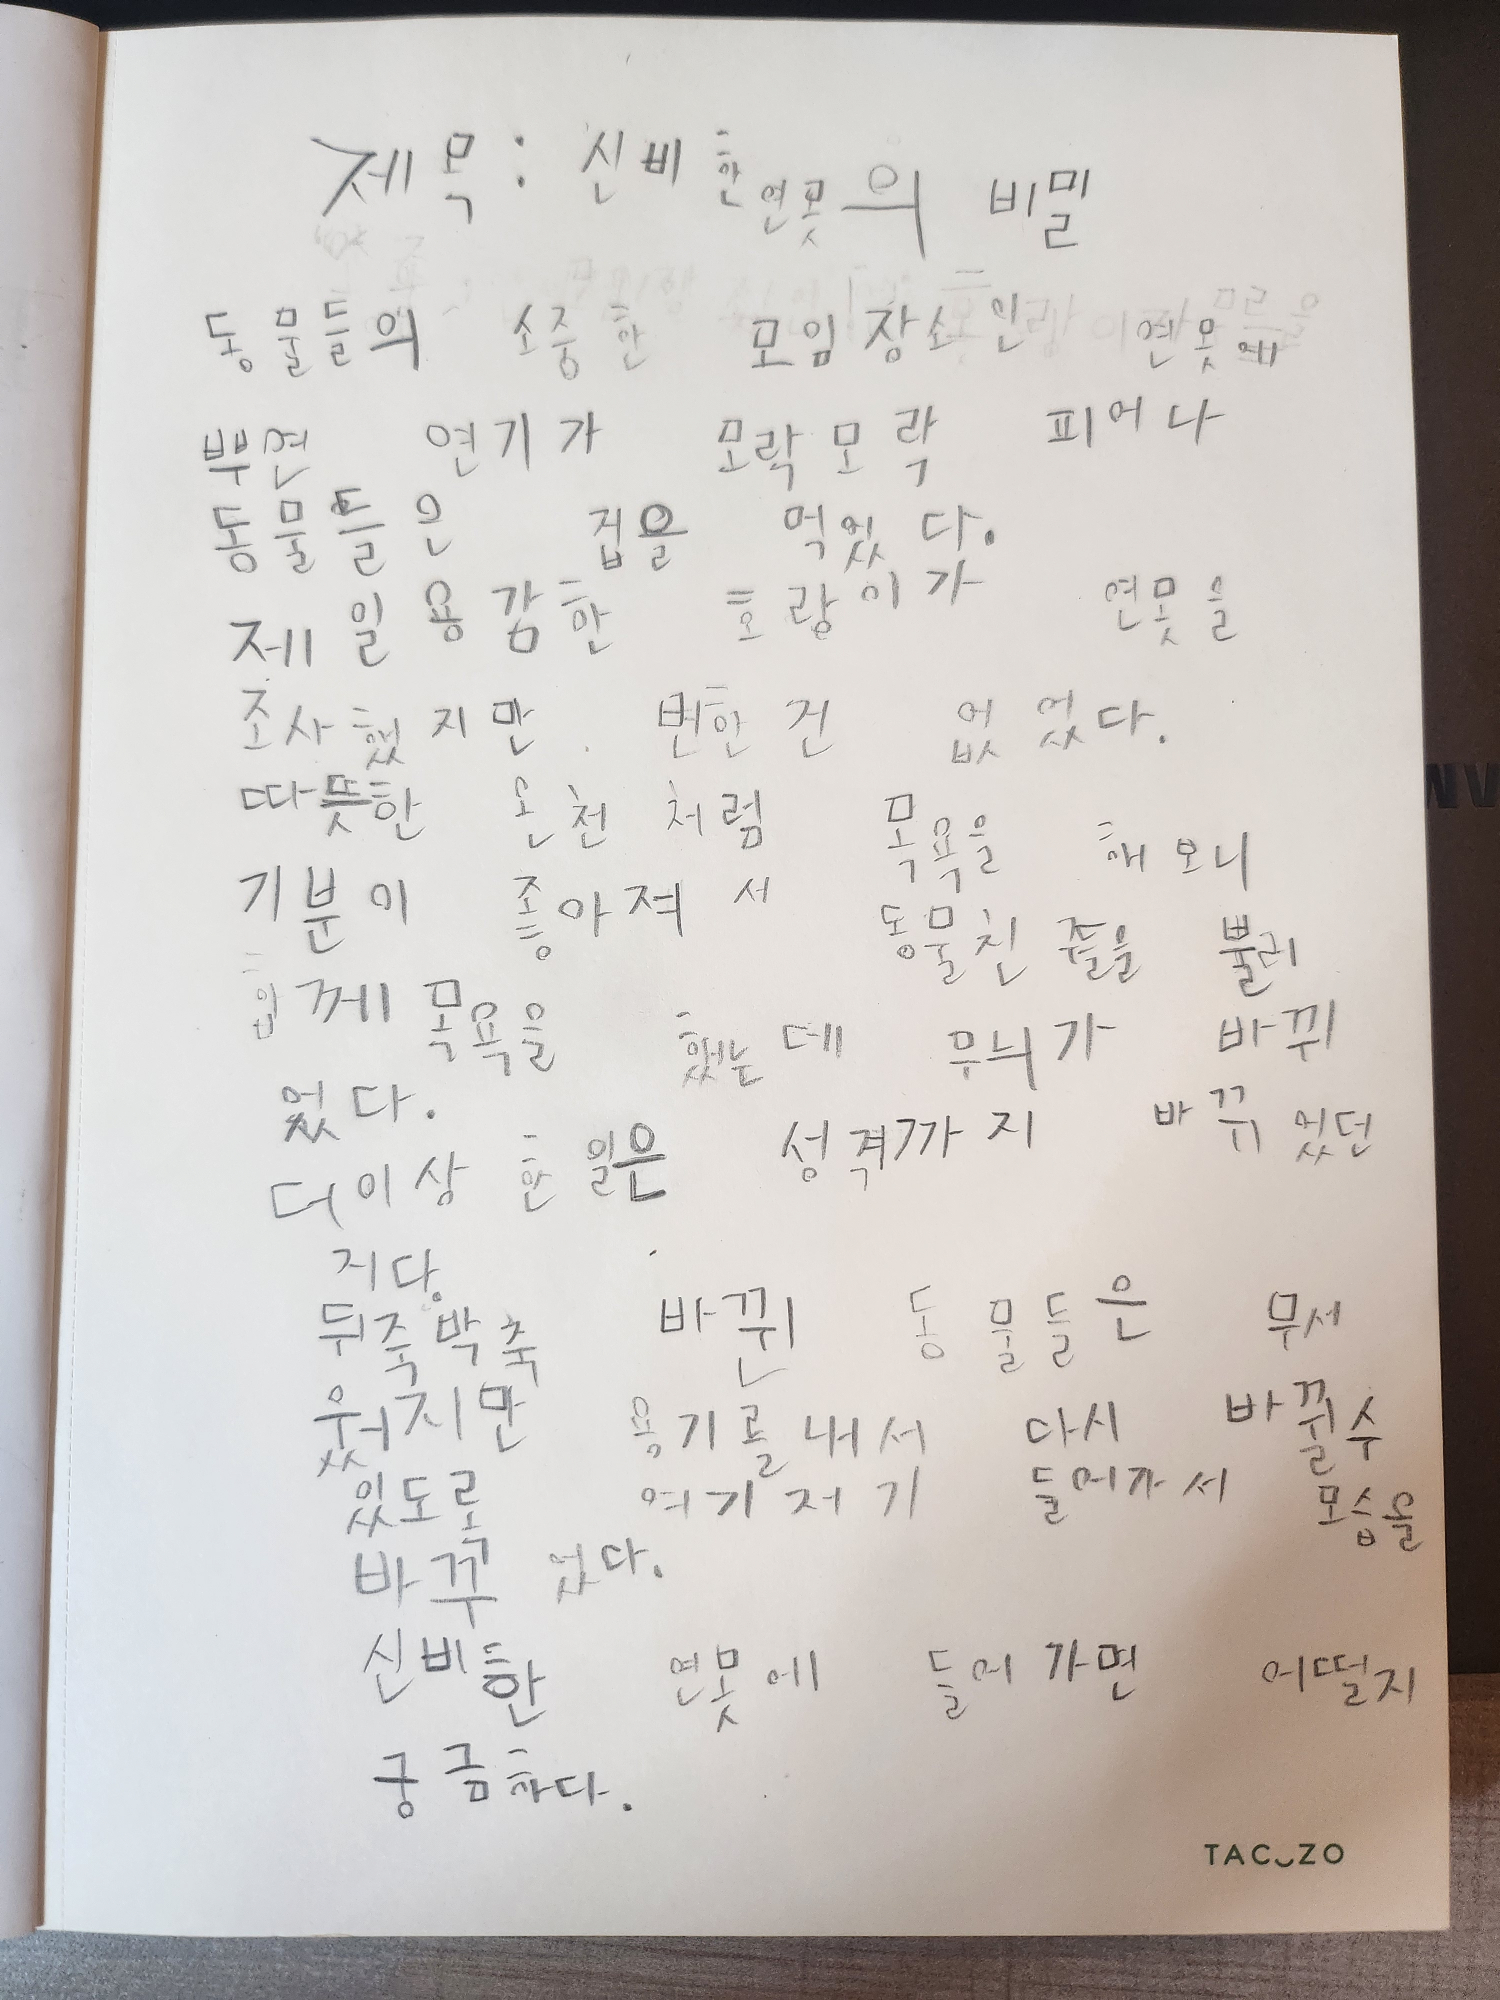 제목: 신비한 연못의 비밀
동물들의 소중한 모임장소인 연못에
뿌연 연기가 모락모락 피어나
동물들은 겁을 먹었다.
제일 용감한 호랑이가 연못을
조사했지만 변한 건 없었다.
따뜻한 온천처럼 목욕을 해보니
기분이 좋아져서 동물친구들을 불러
함께 목욕을 했는데 무늬가 바뀌
었다.
더이상한일은 성격까지 바뀌었던
지다.
뒤죽박죽 바뀐 동물들은 무서
웠지만 용기를내서 다시 바뀔수
있도록 여기저기 들어가서 모습을
바꾸었다.
신비한 연못에 들어가면 어떨지
궁금하다.
TACUZO